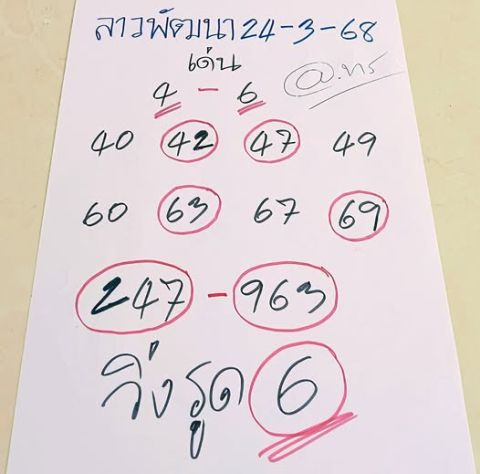 ลาวพัฒนา 24-3-68
เด่น
4 - 6
@.ทร
40 42 47 49
60 63 67 69
247 - 963
วิ่งรูด 6